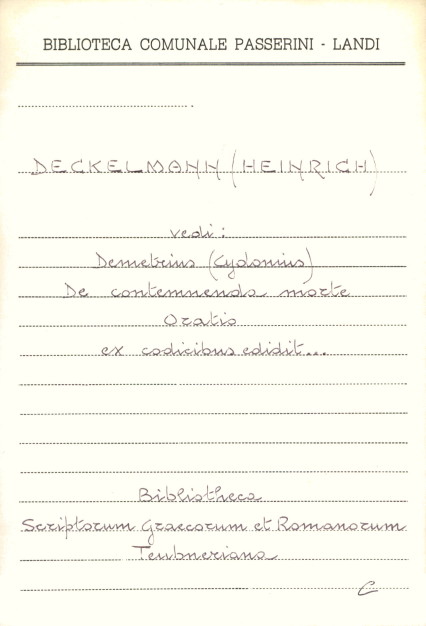 BIBLIOTECA COMUNALE PASSERINI - LANDI
DECKELMANN (HEINRICH)
vedi:
Demetrius (Cydonius)
De contemnenda morte
Oratio
ex codicibus edidit...
Bibliotheca
Scriptorum Graecorum et Romanorum
Teubneriana
C